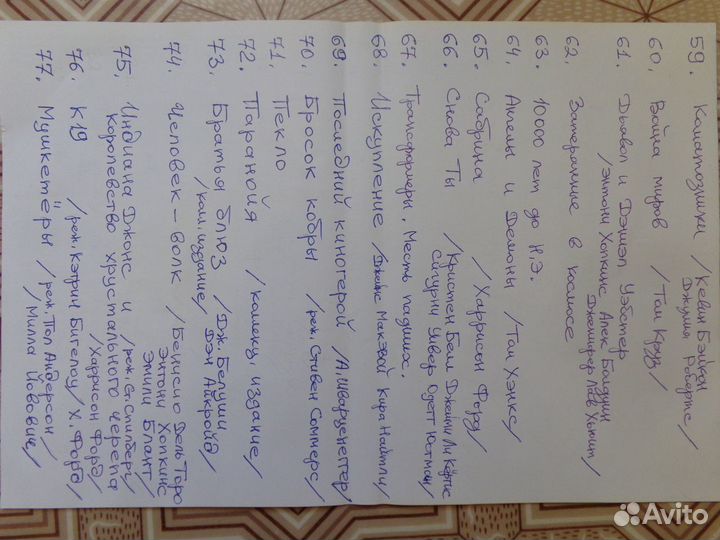 59. Коматозники /Кевин Бэйкон
Джулия Робертс/
60. Война миров /Том Круз/
61. Дьявол и Дэниэл Уэбстер
/Энтони Хопкинс Алек Болдуин
Дженнифер Лав Хьюит/
62. Затерянные в космосе
63. 10000 лет до Н.Э.
64. Ангелы и Демоны /Том Хэнкс/
65. Сабрина /Харрисон Форд/
66. Снова Ты /Кристен Белл Джейми Ли Кёртис
Сигурни Уивер Одетт Юстман/
67. Трансформеры. Месть падших.
68. Искупление /Джеймс Макэвой Кира Найтли/
69. Последний киногерой /А. Шварценеггер/
70. Бросок кобры /реж. Стивен Соммерс/
71. Пекло
72. Паранойя /коллекц. издание/
73. Братья блюз /Дж. Белуши
/кол. издание/ Дэн Айкройд/
74. Человек-волк /Бенисио Дель Торо
Энтони Хопкинс
Эмили Блант/
75. Индиана Джонс и /реж. Ст. Спилберг/
королевство хрустального черепа
/Харрисон Форд/
76. К19 /реж. Кэтрин Бигелоу/ Х. Форд/
77. Мушкетёры /реж. Пол Андерсон/
/Милла Йовович/
Avito